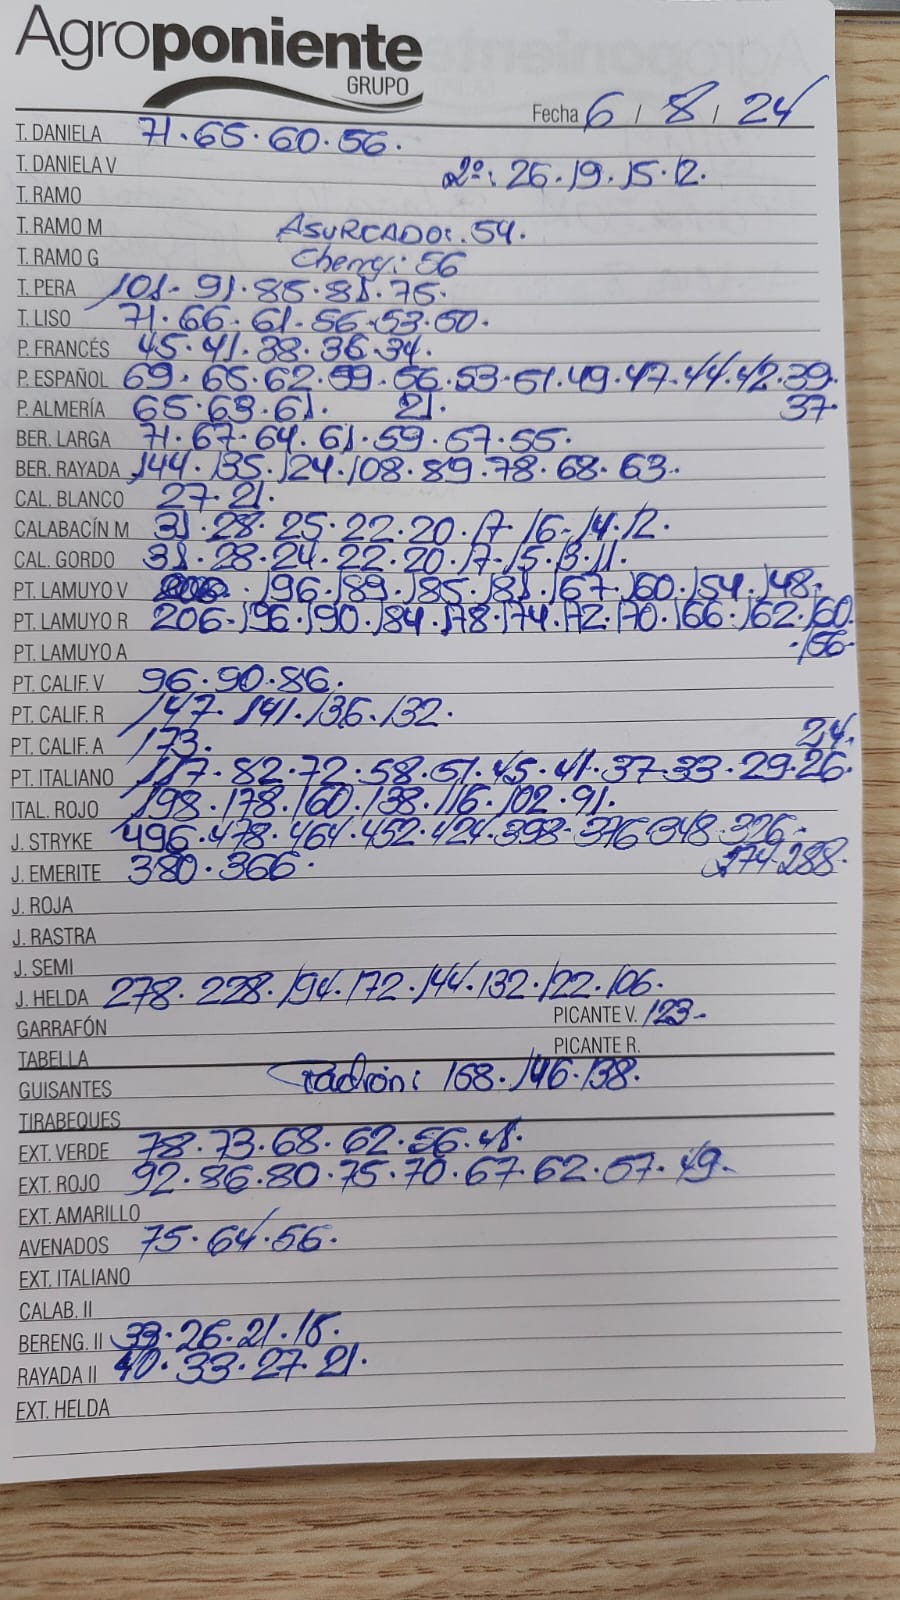 Agroponiente
GRUPO
Fecha 6 / 8 / 24
T. DANIELA 71.65.60.56.
T. DANIELA V 2º: 26.19.15.12.
T. RAMO
T. RAMO M ASURCADO: 54.
T. RAMO G Cherry: 56
T. PERA 101.91.85.81.75.
T. LISO 71.66.61.56.53.50.
P. FRANCÉS 45.41.38.36.34.
P. ESPAÑOL 69.65.62.59.56.53.51.49.47.44.42.39.
P. ALMERÍA 65.63.61. 21. 37.
BER. LARGA 71.67.64.61.59.57.55.
BER. RAYADA 144.135.124.108.89.78.68.63.
CAL. BLANCO 27.21.
CALABACÍN M 31.28.25.22.20.17.16.14.12.
CAL. GORDO 31.28.24.22.20.17.15.13.11.
PT. LAMUYO V 196.189.185.181.167.160.154.148.
PT. LAMUYO R 206.196.190.184.178.174.172.170.166.162.160.
PT. LAMUYO A .156.
PT. CALIF. V 96.90.86.
PT. CALIF. R 147.141.136.132.
PT. CALIF. A 173. 24.
PT. ITALIANO 117.82.72.58.51.45.41.37.33.29.26.
ITAL. ROJO 198.178.160.138.116.102.91.
J. STRYKE 496.478.464.452.424.398.376.348.326.
J. EMERITE 380.366. 274.288.
J. ROJA
J. RASTRA
J. SEMI
J. HELDA 278.228.194.172.144.132.122.106.
GARRAFÓN PICANTE V. 123.
TABELLA PICANTE R.
GUISANTES Padrón: 168.146.138.
TIRABEQUES
EXT. VERDE 78.73.68.62.56.48.
EXT. ROJO 92.86.80.75.70.67.62.57.49.
EXT. AMARILLO
AVENADOS 75.64.56.
EXT. ITALIANO
CALAB. II
BERENG. II 33.26.21.18.
RAYADA II 40.33.27.21.
EXT. HELDA